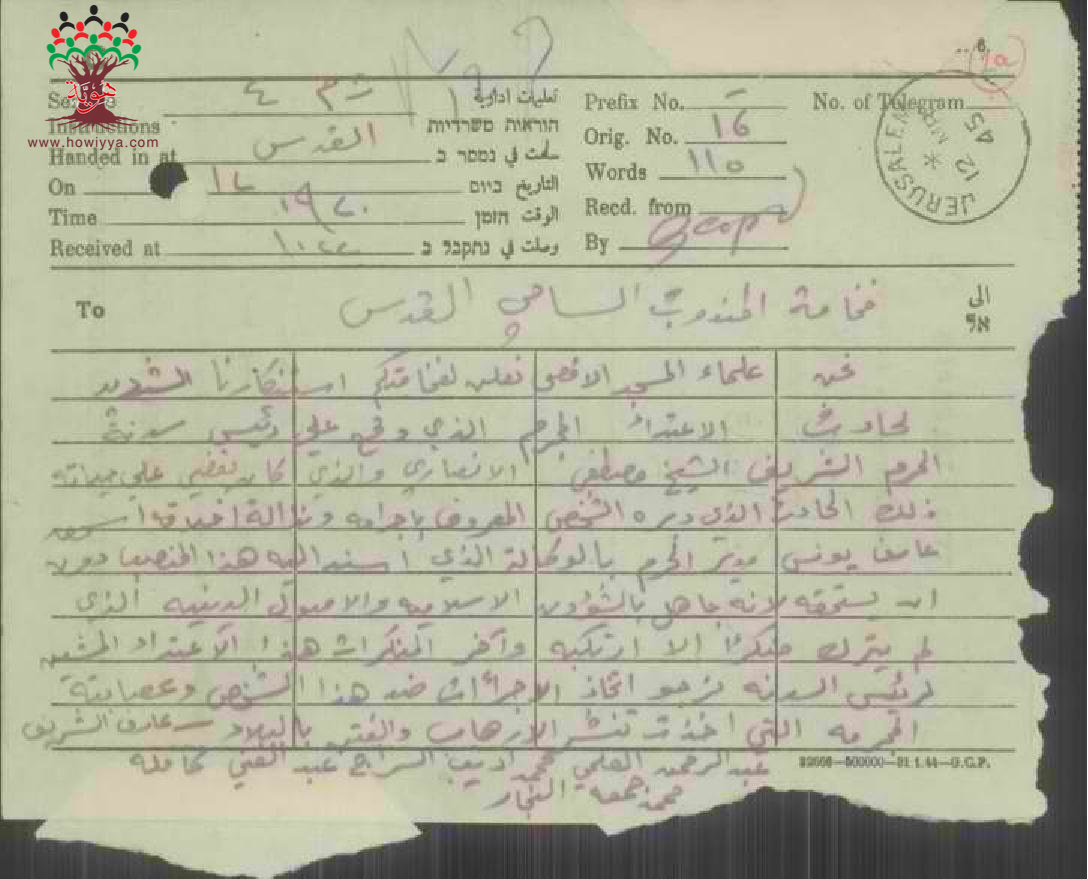 هوية
www.howiyya.com
6.
1a
Instructions
تعليمات ادارية
הוראות משרדיות
Handed in at القدس سلمت في נמסר ב
On 12 التاريخ ביום
Time الوقت הזמן
Received at وصلت في נתקבל ב
Prefix No. —
Orig. No. 16
Words 110
Recd. from
By
No. of Telegram
JERUSALEM
12 MR 45
To فخامة المندوب السامي القدس الى אל
نحن علماء المسجد الاقصى نعلن لفخامتكم استنكارنا الشديد
لحادث الاعتداء المجرم الذي وقع على رئيس سدنة
الحرم الشريف الشيخ مصطفى الانصاري والذي كاد يقضي على حياته
ذلك الحادث الذي دبره الشخص المعروف باجرامه ونذالة اخلاقه
عارف يونس مدير الحرم بالوكالة الذي اسند اليه هذا المنصب دون
ان يستحقه لانه جاهل بالشؤون الاسلامية والاصول الدينيه الذي
لم يترك منكرا الا ارتكبه وآخر المنكرات هذا الاعتداء المشين
لرئيس السدنه نرجو اتخاذ الاجراءات ضد هذا الشخص وعصابته
المجرمه التي اخذت تنشر الارهاب والفتن بالبلاد عارف الشريف
عبد الرحمن العلمي محمد اديب السراج عبد الغني كامله
محمد جمعه النجار
32666—500000—31.1.44—G.C.P.